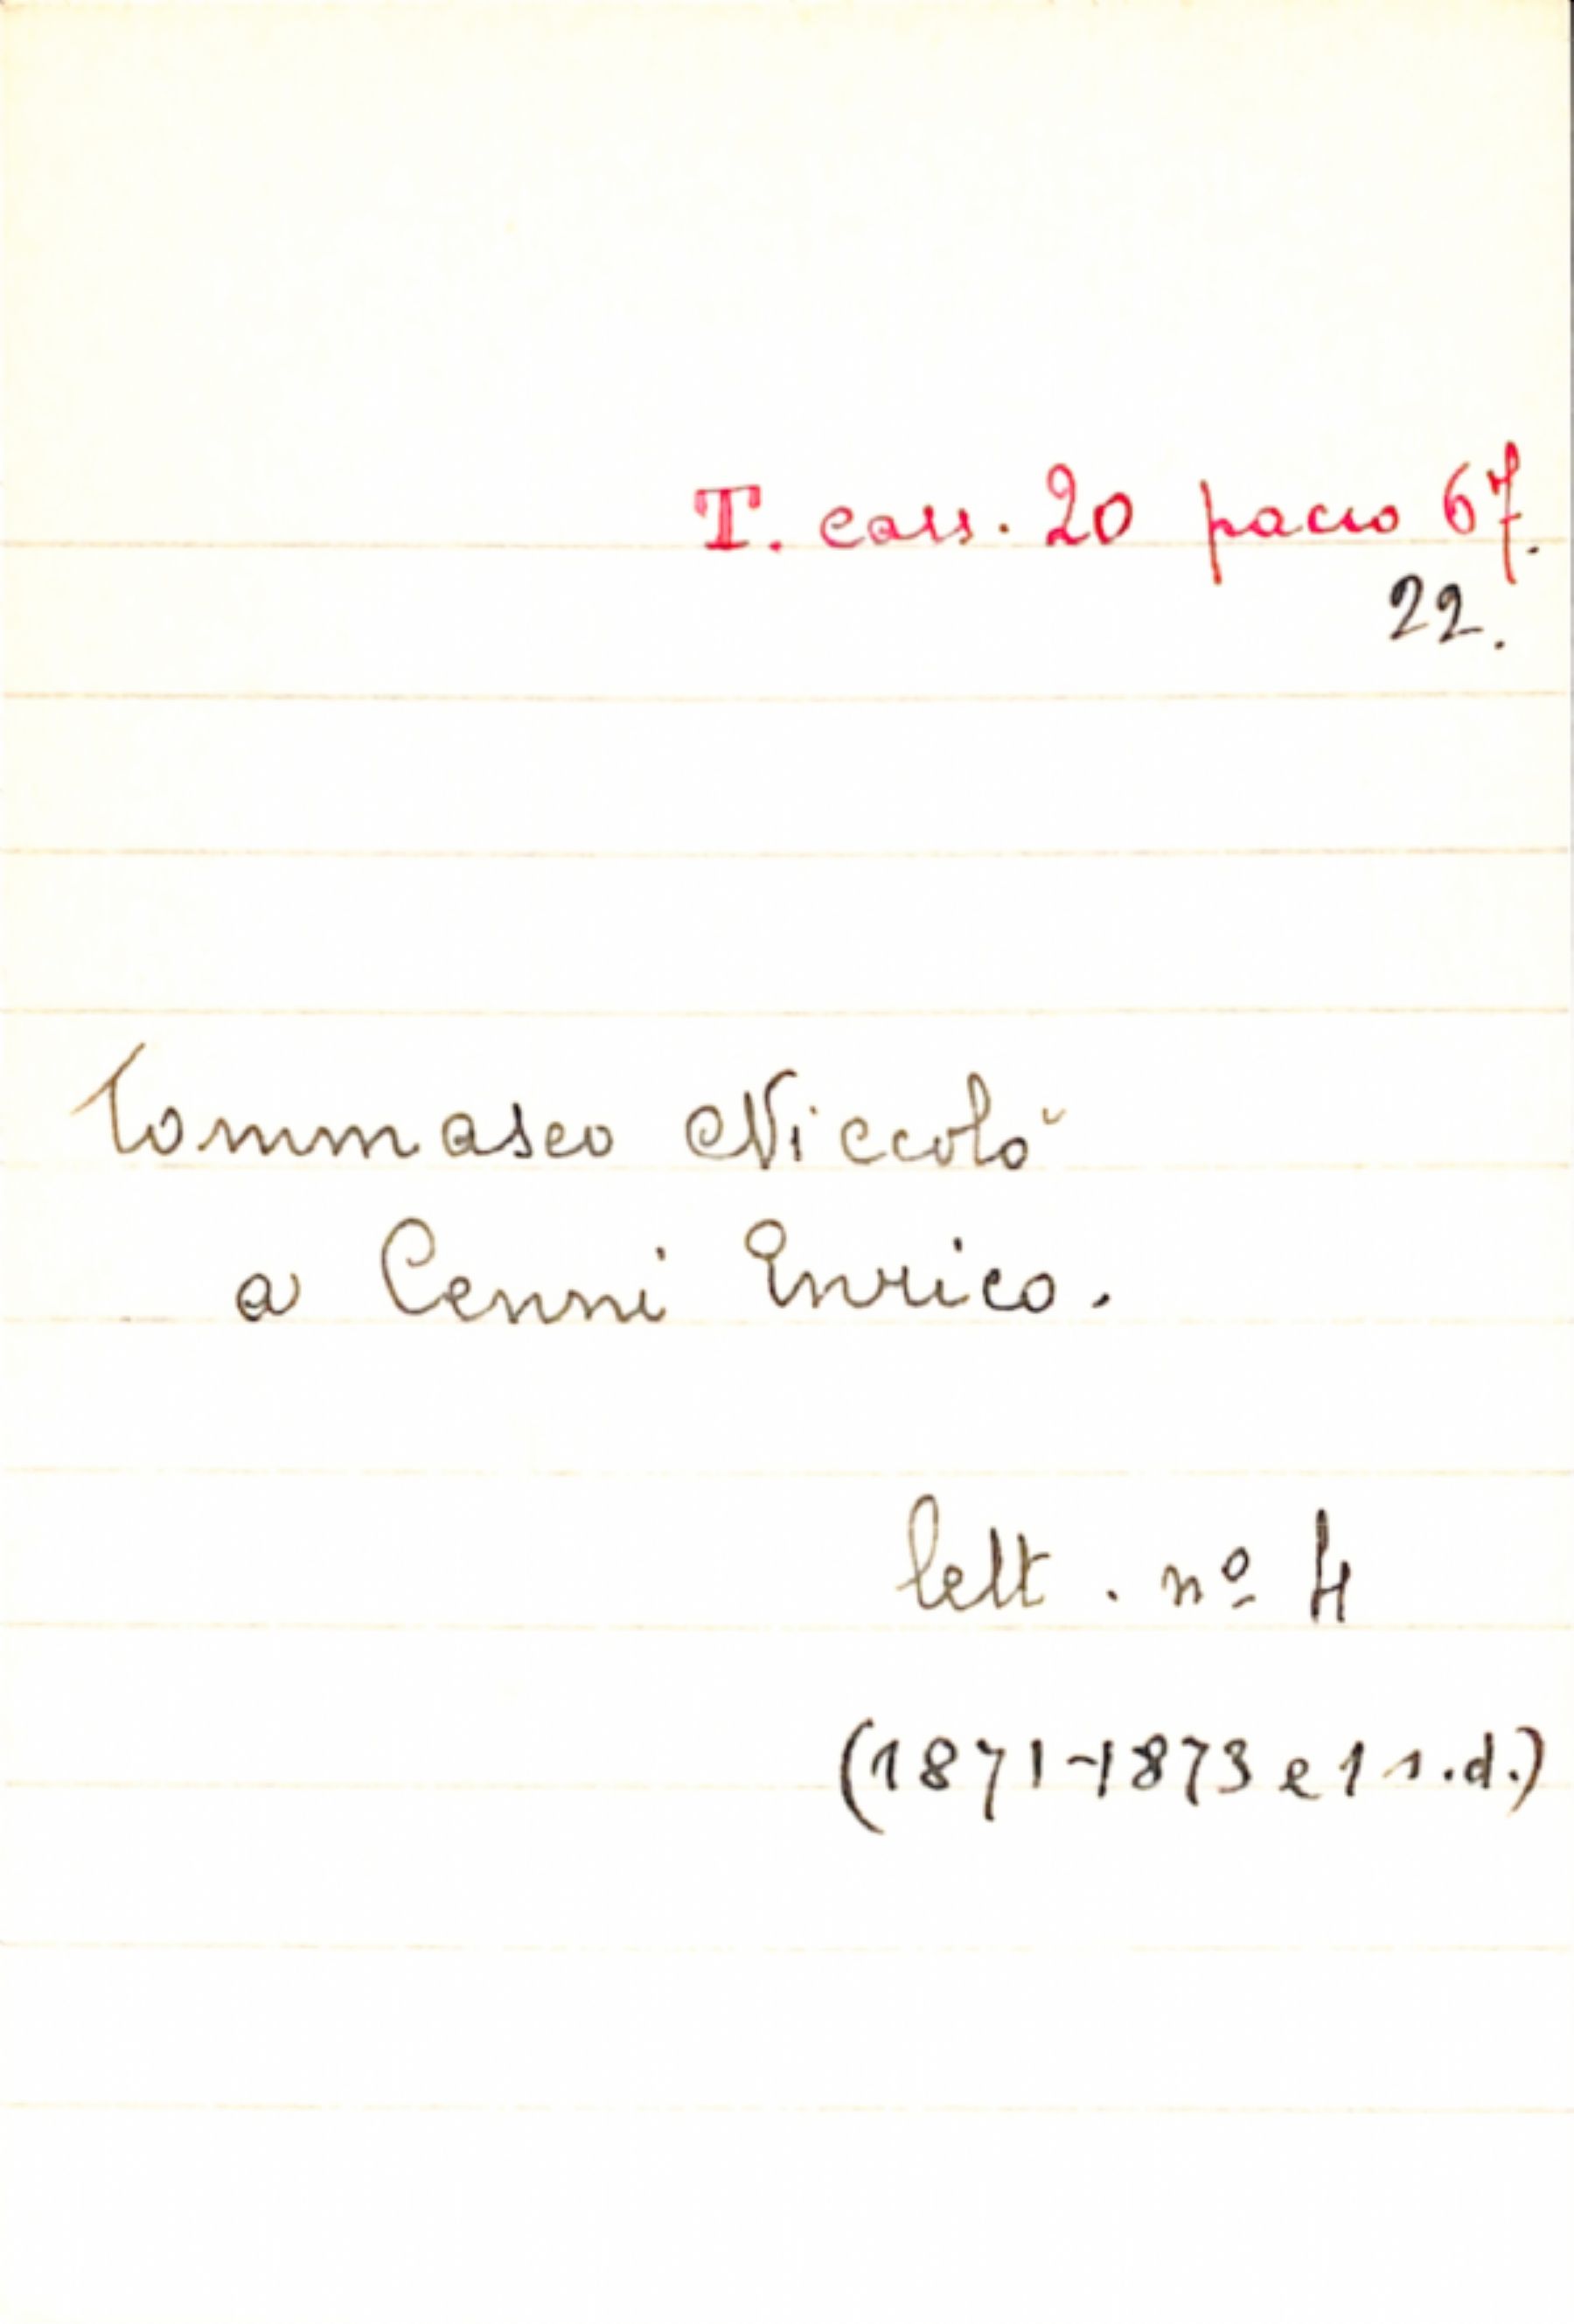 T. cass. 20 pacco 67.
22.
Tommaseo Niccolò
a Cenni Enrico.
lett. nº 4
(1871-1873 e 1 s.d.)